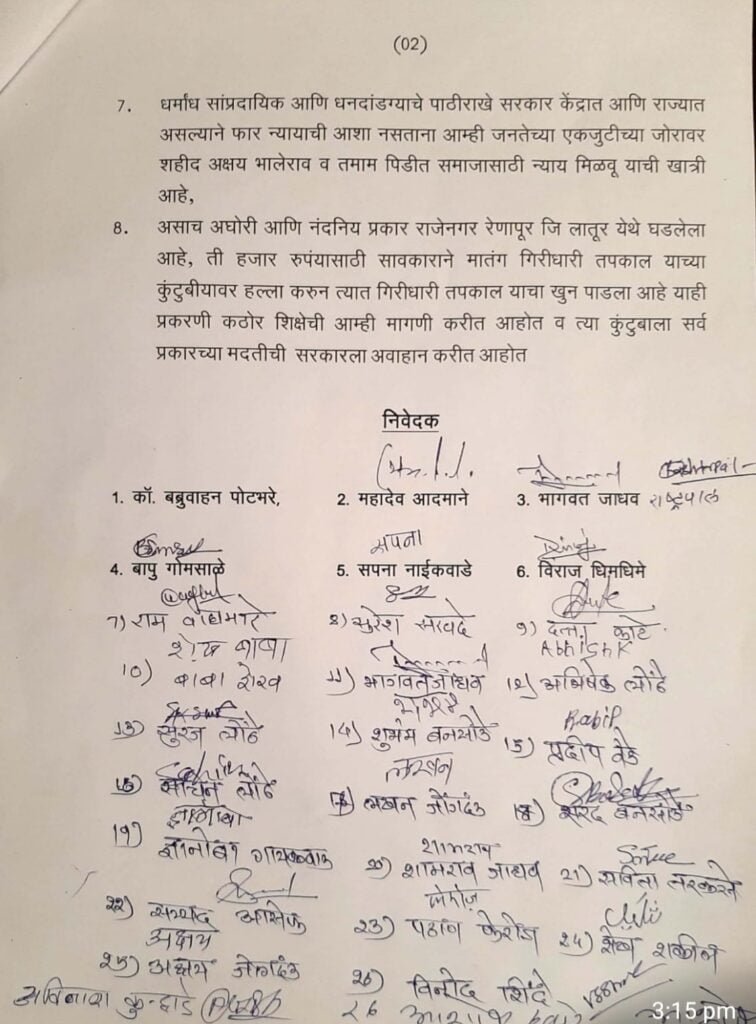 (02)
7. धर्मांध सांप्रदायिक आणि धनदांडग्याचे पाठीराखे सरकार केंद्रात आणि राज्यात
असल्याने फार न्यायाची आशा नसताना आम्ही जनतेच्या एकजुटीच्या जोरावर
शहीद अक्षय भालेराव व तमाम पिडीत समाजासाठी न्याय मिळवू याची खात्री
आहे,
8. असाच अघोरी आणि नंदनिय प्रकार राजेनगर रेणापूर जि लातूर येथे घडलेला
आहे, ती हजार रुपंयासाठी सावकाराने मातंग गिरीधारी तपकाल याच्या
कुंटुबीयावर हल्ला करुन त्यात गिरीधारी तपकाल याचा खुन पाडला आहे याही
प्रकरणी कठोर शिक्षेची आम्ही मागणी करीत आहोत व त्या कुंटुबाला सर्व
प्रकारच्या मदतीची सरकारला अवाहान करीत आहोत
निवेदक
1. कॉ. बब्रुवाहन पोटभरे, 2. महादेव आदमाने 3. भागवत जाधव राष्ट्रपाल
सपना
4. बापु गोमसाळे 5. सपना नाईकवाडे 6. विराज धिमधिमे
7) राम वाघमारे 8) सुरेश सरवदे 9) दत्ता
शेख बाबा Abhishk
10) बाबा शेख 11) भागवत जाधव 12) अभिषेक लोंढे
13) सुरज लोंढे 14) शुभम बनसोडे 15) प्रदीप
लखन
16) सचिन लोंढे 17) लखन जोगदंड 18) शरद बनसोडे
शामराव
19) ज्ञानोबा गायकवाड 20) शामराव जाधव 21) सविता
22) सय्यद आसेफ 23) पठाण फेरोज 24) शेख शकील
अक्षय
25) अक्षय जोगदंड 26) विनोद शिंदे
अविनाश
3:15 pm